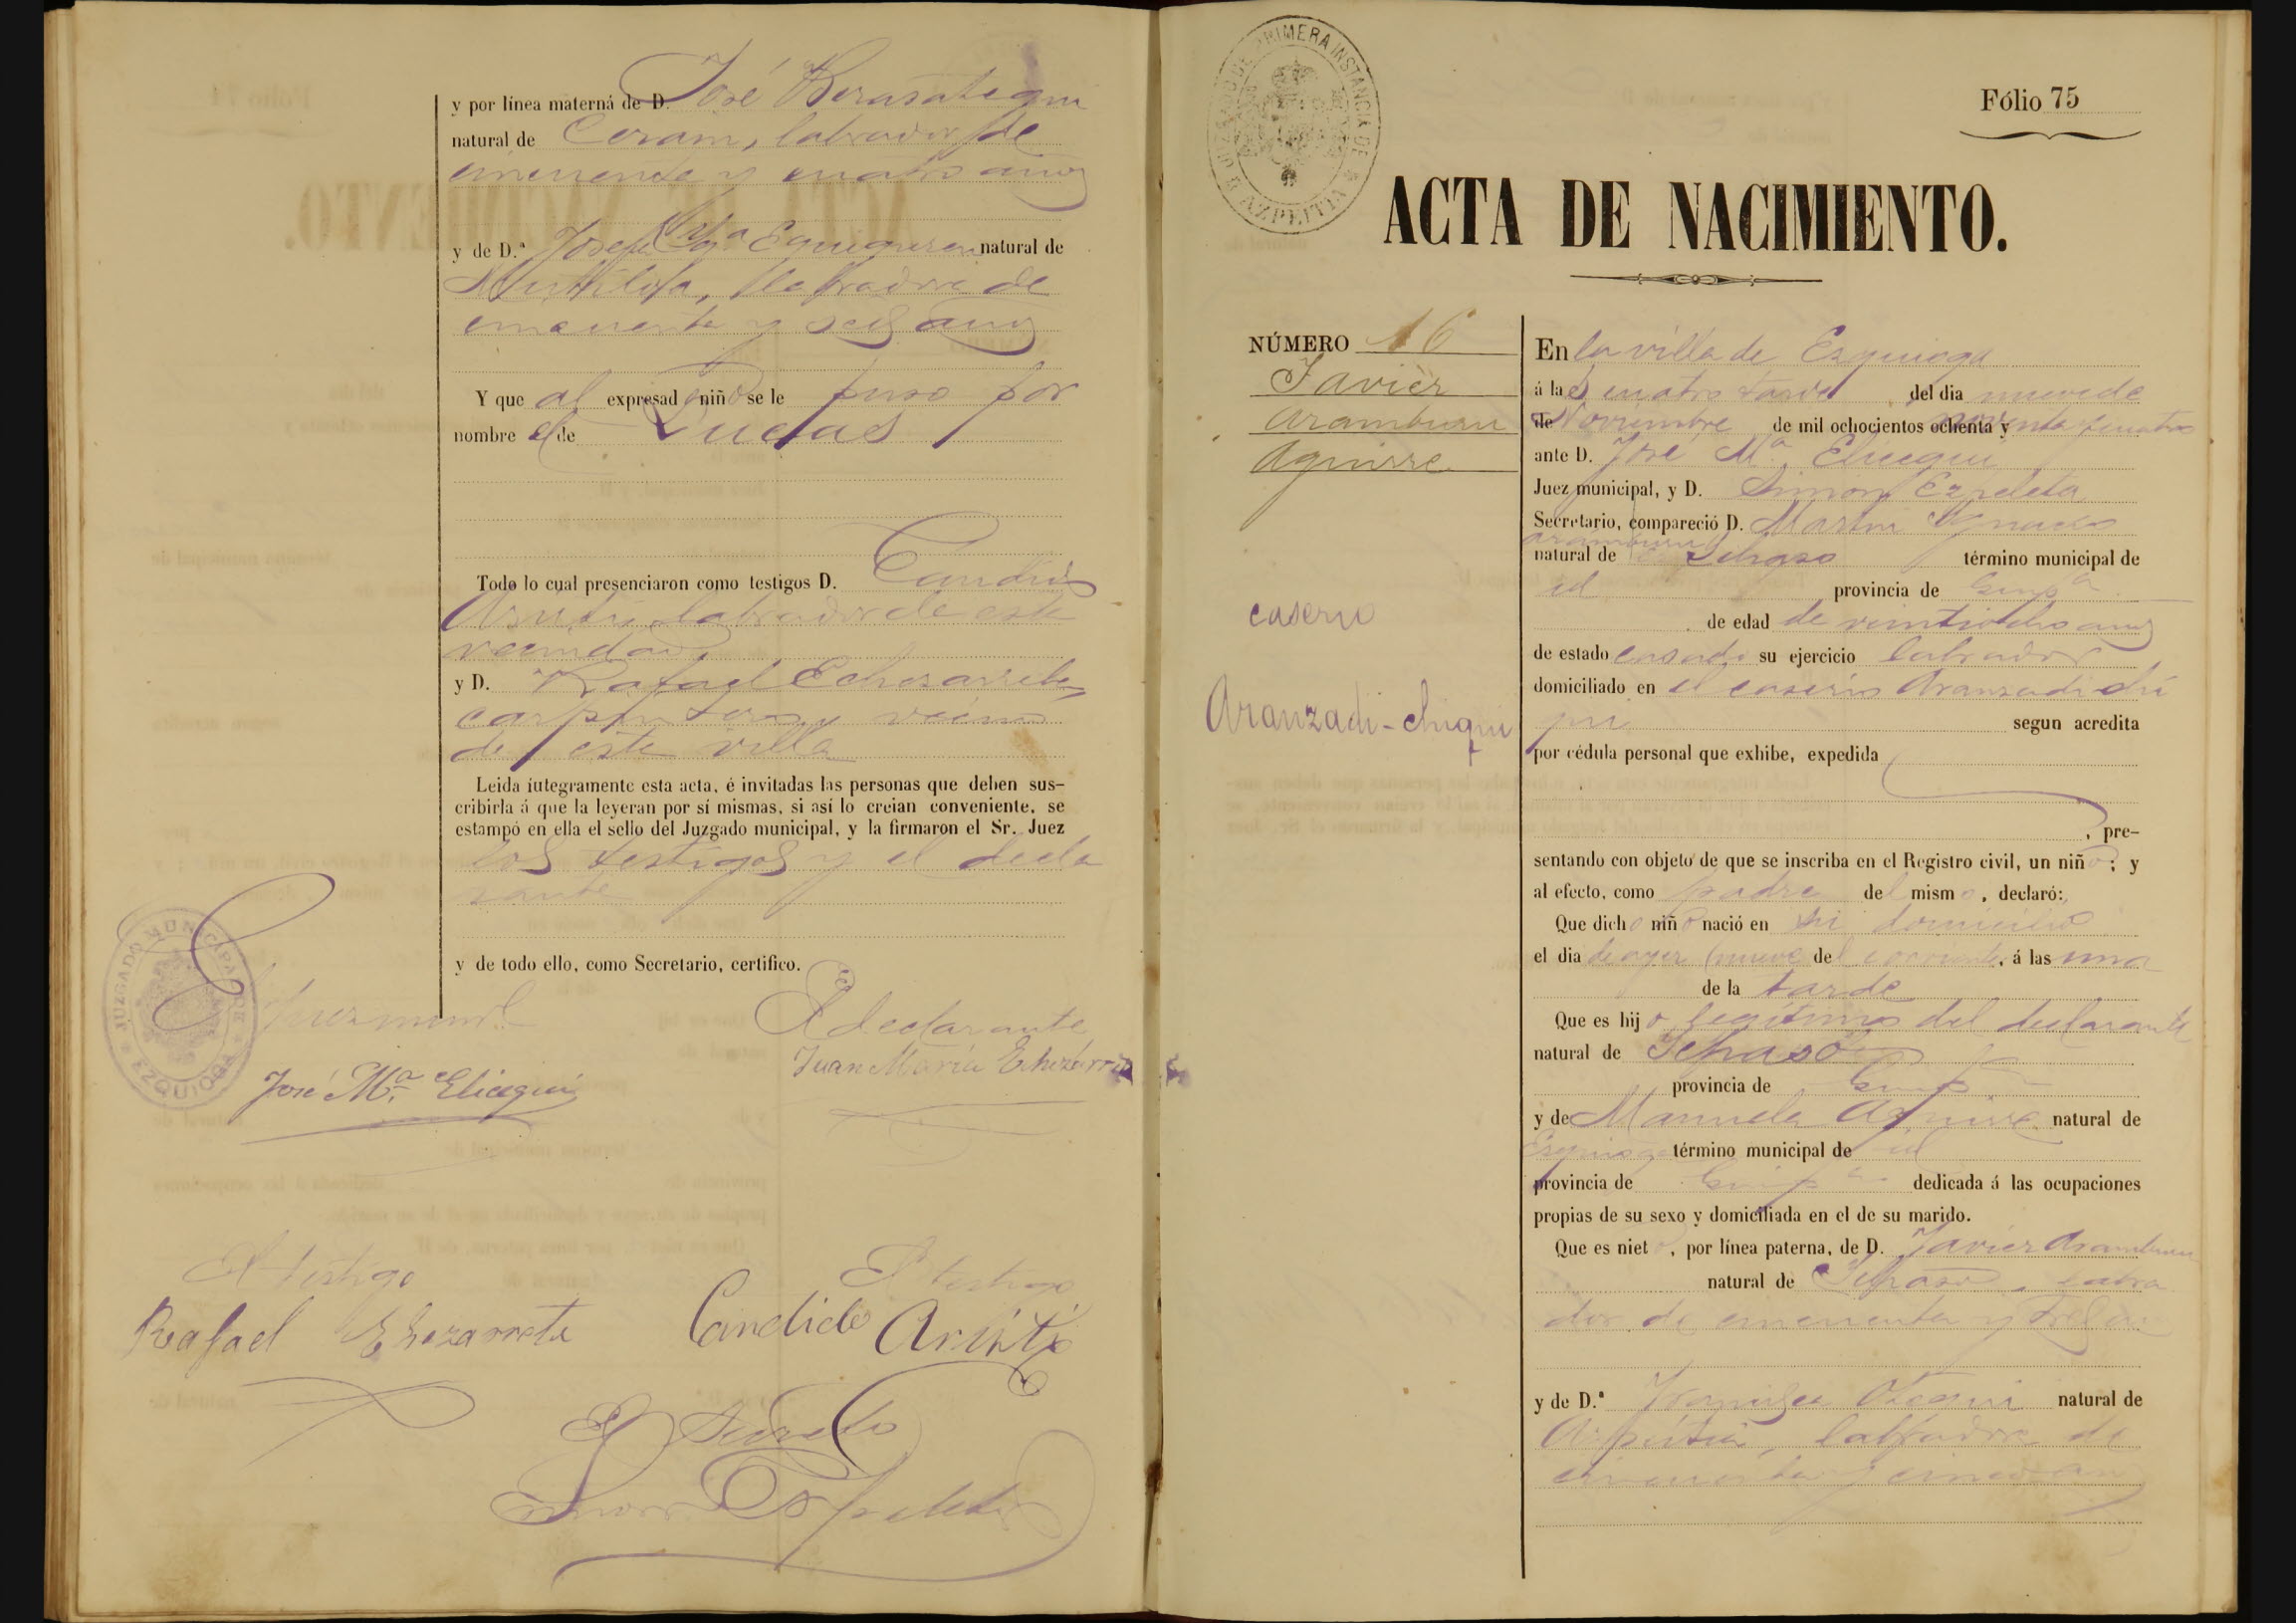 y por línea materna de D. José Berasategui
natural de Cerain, labrador de
cincuenta y cuatro años
y de D.ª Josefa Ig.ª Eguiguren natural de
Mutiloa, labradora de
cincuenta y seis años
Y que al expresad niño se le puso por
nombre el de Lucas
Todo lo cual presenciaron como testigos D. Candido
labrador de esta
vecindad
y D. Rafael Echezarreta,
carpintero y vecino
de esta villa
Leida íutegramente esta acta, é invitadas las personas que deben sus-
cribirla á que la leyeran por sí mismas, si así lo creian conveniente, se
estampó en ella el sello del Juzgado municipal, y la firmaron el Sr. Juez
los testigos y el decla
rante
y de todo ello, como Secretario, certifico.
JUZGADO MUNICIPAL DE EZQUIOGA
Juez munl.
El declarante
José M.ª Elicegui
Juan María Echezarreta
El testigo
El testigo
Rafael Ehezarreta
Candido
El Secreto
Simon Ezpeleta
JUZGADO DE PRIMERA INSTANCIA DE AZPEITIA
Fólio 75
ACTA DE NACIMIENTO.
NÚMERO 16
Javier
Aramburu
Aguirre
caserio
Aranzadi-chiqui
En la villa de Ezquioga
á las cuatro tarde del dia nueve de
de Noviembre de mil ochocientos ochenta y noventa y cuatro
ante D. José M.ª Elicegui
Juez municipal, y D. Simon Ezpeleta
Secretario, compareció D. Martin Ygnacio
Aramburu
natural de Ichaso término municipal de
id provincia de Guip.ª
de edad de veintiocho años
de estado casado su ejercicio labrador
domiciliado en el caserio Aranzadi chi
qui segun acredita
por cédula personal que exhibe, expedida
, pre-
sentando con objeto de que se inscriba en el Registro civil, un niño; y
al efecto, como padre del mismo, declaró:
Que dicho niño nació en su domicilio
el dia de ayer (nueve del corriente, á las una
de la tarde
Que es hijo legítimo del declarante
natural de Ichaso
provincia de Guip
y de Manuela Aguirre natural de
Ezquioga término municipal de id
provincia de Guip.ª dedicada á las ocupaciones
propias de su sexo y domiciliada en el de su marido.
Que es nieto, por línea paterna, de D. Javier Aramburu
natural de Ichaso, labra
dor de cincuenta y tres
y de D.ª Francisca Otegui natural de
Azpeitia, labradora de
cincuenta y cinco